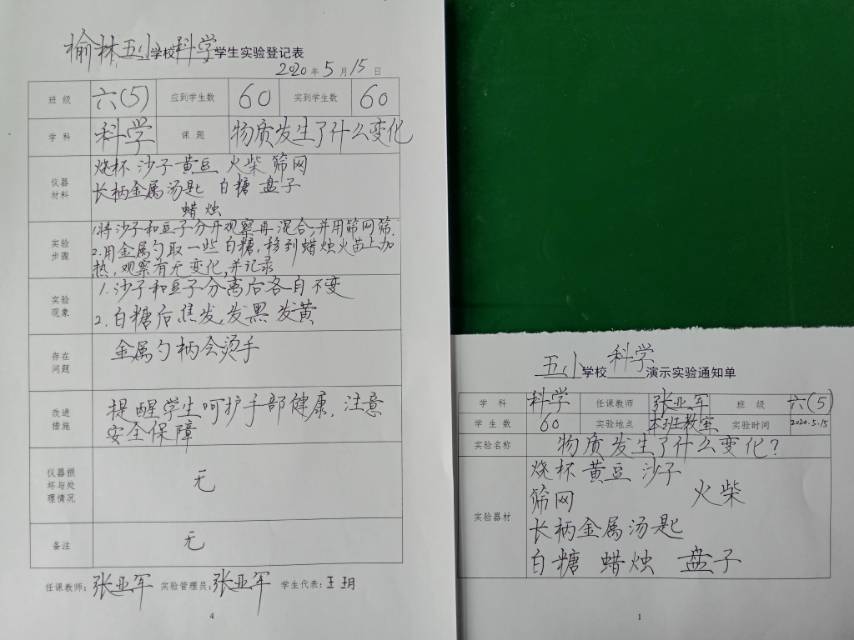 榆林五小学校科学学生实验登记表
2020年5月15日
班级 六(5) 应到学生数 60 实到学生数 60
学科 科学 课题 物质发生了什么变化
仪器材料
烧杯 沙子 黄豆 火柴 筛网
长柄金属汤匙 白糖 盘子
蜡烛
实验步骤
1.将沙子和豆子分开观察再混合,并用筛网筛.
2.用金属勺取一些白糖,移到蜡烛火苗上加
热,观察有无变化,并记录
实验现象
1.沙子和豆子分离后各自不变
2.白糖后焦发,发黑 发黄
存在问题
金属勺柄会烫手
改进措施
提醒学生呵护手部健康,注意
安全保障
仪器损坏与处理情况
无
备注
无
任课教师:张亚军 实验管理员:张亚军 学生代表:王玥
4
五小学校科学演示实验通知单
学科 科学 任课教师 张亚军 班级 六(5)
学生数 60 实验地点 本班教室 实验时间 2020.5.15
实验名称 物质发生了什么变化?
实验器材
烧杯 黄豆 沙子
筛网 火柴
长柄金属汤匙
白糖 蜡烛 盘子
1